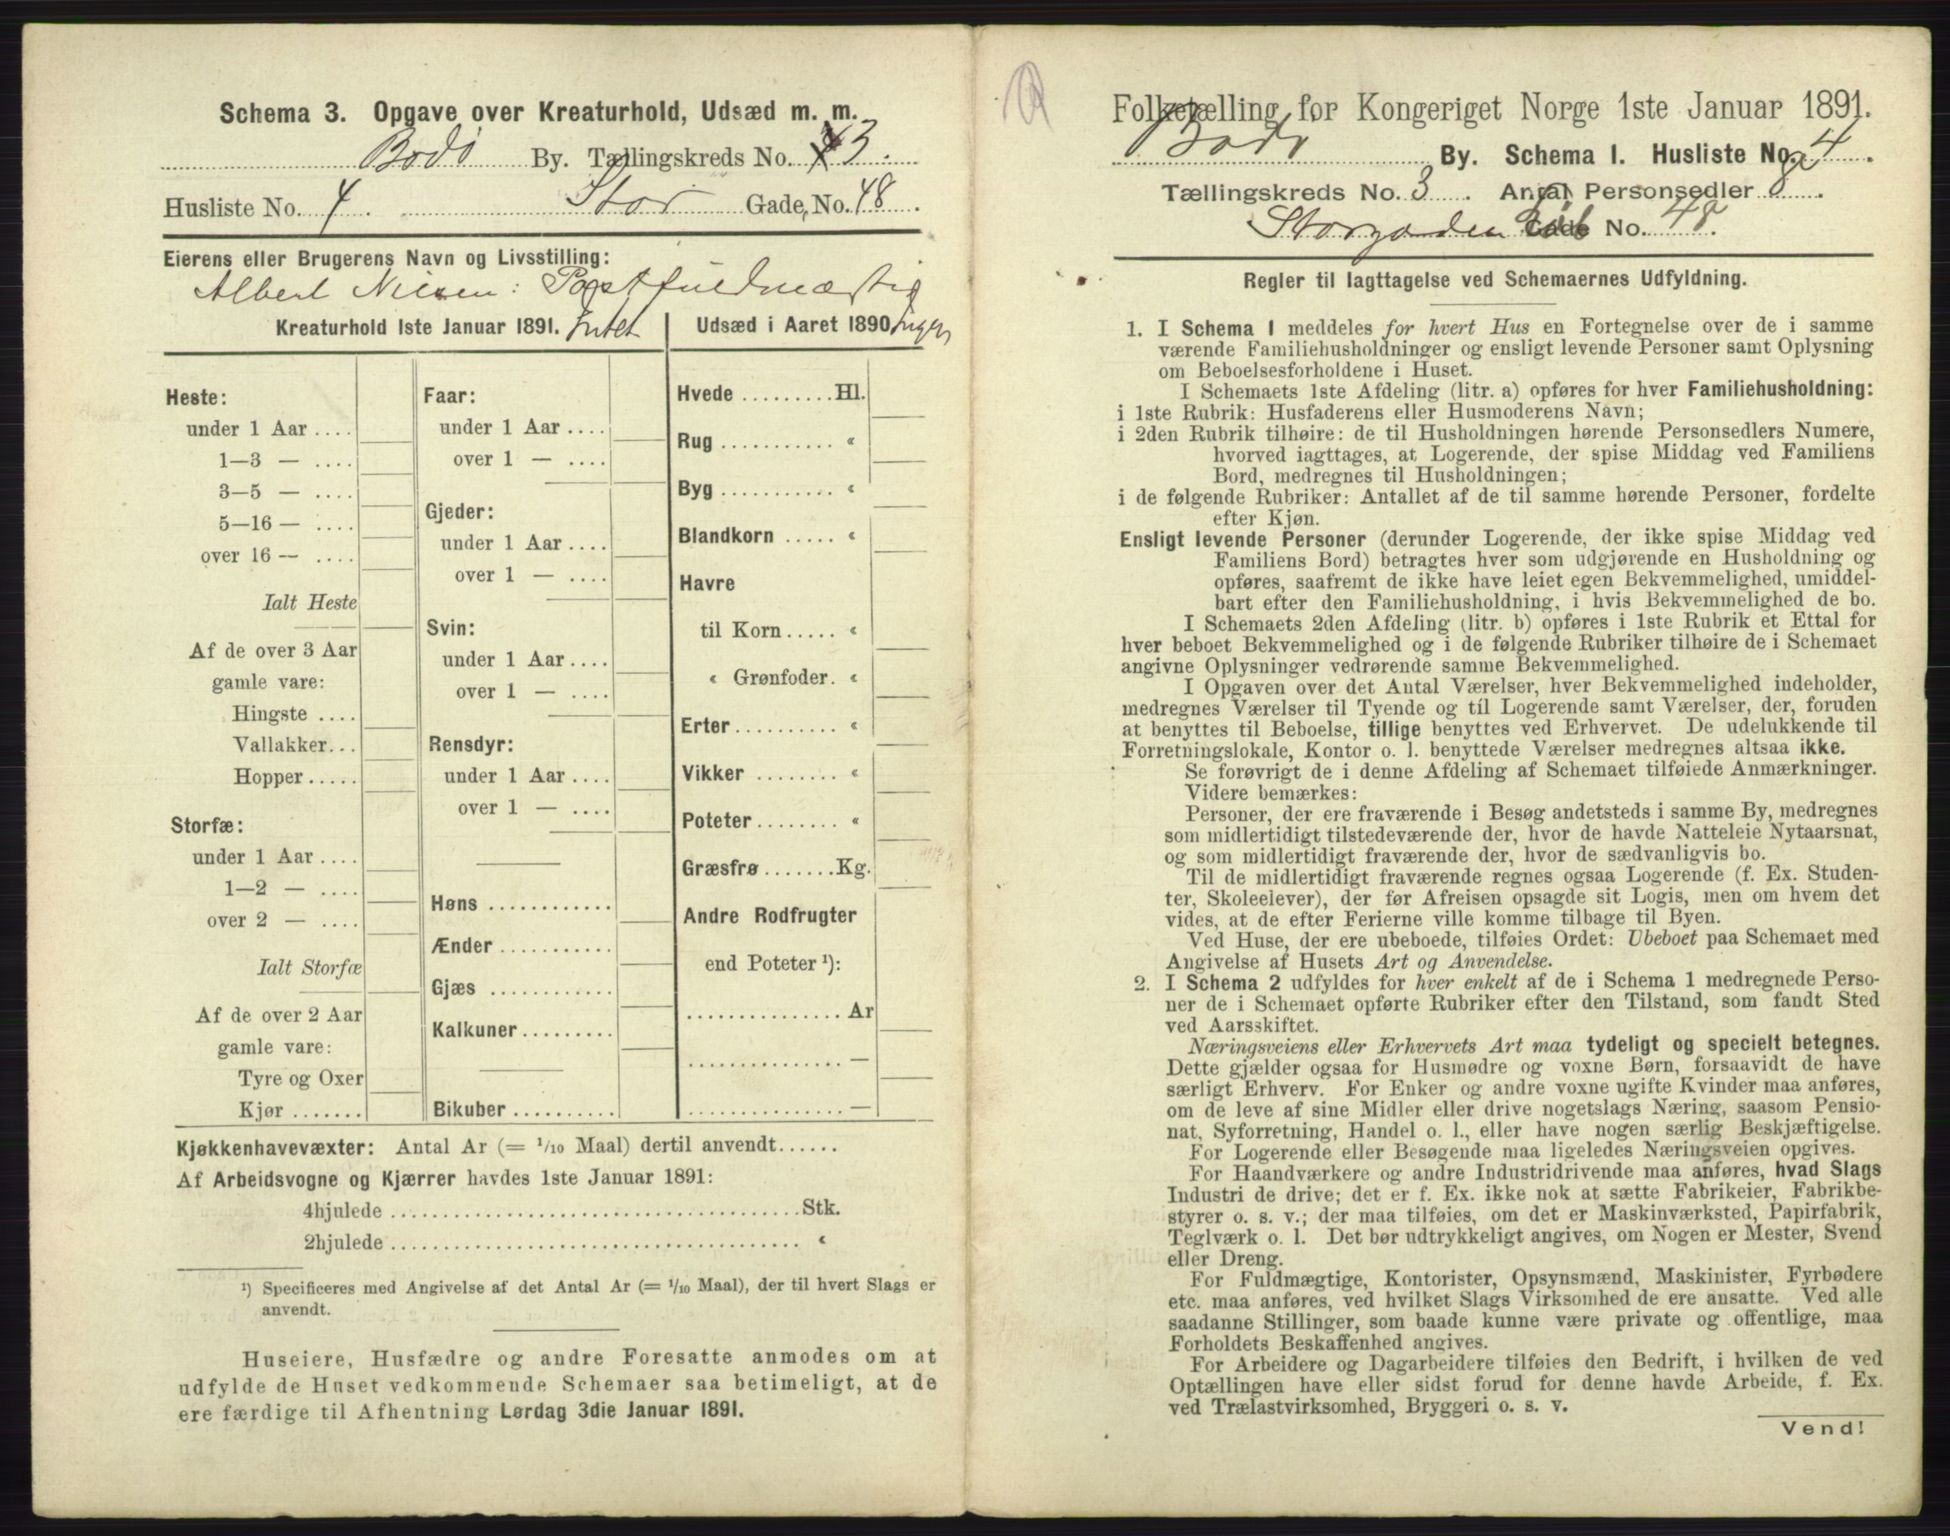 Schema 3. Opgave over Kreaturhold, Udsæd m. m.
Bodø By. Tællingskreds No. 3.
Husliste No. 4 Stor Gade, No. 48
Eierens eller Brugerens Navn og Livsstilling:
Albert Nilsen: Postfuldmægtig
Kreaturhold 1ste Januar 1891. Intet
Heste:
under 1 Aar ....
1—3 — ....
3—5 — ....
5—16 — ....
over 16 — ....
Ialt Heste
Af de over 3 Aar
gamle vare:
Hingste ....
Vallakker...
Hopper.....
Storfæ:
under 1 Aar ....
1—2 — ....
over 2 — ....
Ialt Storfæ
Af de over 2 Aar
gamle vare:
Tyre og Oxer
Kjør .......
Faar:
under 1 Aar ....
over 1 — ....
Gjeder:
under 1 Aar ....
over 1 — ....
Svin:
under 1 Aar ....
over 1 — ....
Rensdyr:
under 1 Aar ....
over 1 — ....
Høns ............
Ænder ...........
Gjæs ............
Kalkuner .........
Bikuber ..........
Udsæd i Aaret 1890. Ingen
Hvede .........Hl.
Rug ........... «
Byg ........... «
Blandkorn ..... «
Havre
til Korn ..... «
« Grønfoder. «
Erter .......... «
Vikker ........ «
Poteter ........ «
Græsfrø .......Kg.
Andre Rodfrugter
end Poteter ¹):
............... Ar
............... —
............... —
Kjøkkenhavevæxter: Antal Ar (= 1/10 Maal) dertil anvendt ......
Af Arbeidsvogne og Kjærrer havdes 1ste Januar 1891:
4hjulede ....................................... Stk.
2hjulede ....................................... «
¹) Specificeres med Angivelse af det Antal Ar (= 1/10 Maal), der til hvert Slags er
anvendt.
Huseiere, Husfædre og andre Foresatte anmodes om at
udfylde de Huset vedkommende Schemaer saa betimeligt, at de
ere færdige til Afhentning Lørdag 3die Januar 1891.
Folketælling for Kongeriget Norge 1ste Januar 1891.
Bodø By. Schema I. Husliste No. 4.
Tællingskreds No. 3. Antal Personsedler 8.
Storgaden Gade No. 48.
Regler til Iagttagelse ved Schemaernes Udfyldning.
1. I Schema 1 meddeles for hvert Hus en Fortegnelse over de i samme
værende Familiehusholdninger og ensligt levende Personer samt Oplysning
om Beboelsesforholdene i Huset.
I Schemaets 1ste Afdeling (litr. a) opføres for hver Familiehusholdning:
i 1ste Rubrik: Husfaderens eller Husmoderens Navn;
i 2den Rubrik tilhøire: de til Husholdningen hørende Personsedlers Numere,
hvorved iagttages, at Logerende, der spise Middag ved Familiens
Bord, medregnes til Husholdningen;
i de følgende Rubriker: Antallet af de til samme hørende Personer, fordelte
efter Kjøn.
Ensligt levende Personer (derunder Logerende, der ikke spise Middag ved
Familiens Bord) betragtes hver som udgjørende en Husholdning og
opføres, saafremt de ikke have leiet egen Bekvemmelighed, umiddel-
bart efter den Familiehusholdning, i hvis Bekvemmelighed de bo.
I Schemaets 2den Afdeling (litr. b) opføres i 1ste Rubrik et Ettal for
hver beboet Bekvemmelighed og i de følgende Rubriker tilhøire de i Schemaet
angivne Oplysninger vedrørende samme Bekvemmelighed.
I Opgaven over det Antal Værelser, hver Bekvemmelighed indeholder,
medregnes Værelser til Tyende og til Logerende samt Værelser, der, foruden
at benyttes til Beboelse, tillige benyttes ved Erhvervet. De udelukkende til
Forretningslokale, Kontor o. l. benyttede Værelser medregnes altsaa ikke.
Se forøvrigt de i denne Afdeling af Schemaet tilføiede Anmærkninger.
Videre bemærkes:
Personer, der ere fraværende i Besøg andetsteds i samme By, medregnes
som midlertidigt tilstedeværende der, hvor de havde Natteleie Nytaarsnat,
og som midlertidigt fraværende der, hvor de sædvanligvis bo.
Til de midlertidigt fraværende regnes ogsaa Logerende (f. Ex. Studen-
ter, Skoleelever), der før Afreisen opsagde sit Logis, men om hvem det
vides, at de efter Ferierne ville komme tilbage til Byen.
Ved Huse, der ere ubeboede, tilføies Ordet: Ubeboet paa Schemaet med
Angivelse af Husets Art og Anvendelse.
2. I Schema 2 udfyldes for hver enkelt af de i Schema 1 medregnede Perso-
ner de i Schemaet opførte Rubriker efter den Tilstand, som fandt Sted
ved Aarsskiftet.
Næringsveiens eller Erhvervets Art maa tydeligt og specielt betegnes.
Dette gjælder ogsaa for Husmødre og voxne Børn, forsaavidt de have
særligt Erhverv. For Enker og andre voxne ugifte Kvinder maa anføres,
om de leve af sine Midler eller drive nogetslags Næring, saasom Pensio-
nat, Syforretning, Handel o. l., eller have nogen særlig Beskjæftigelse.
For Logerende eller Besøgende maa ligeledes Næringsveien opgives.
For Haandværkere og andre Industridrivende maa anføres, hvad Slags
Industri de drive; det er f. Ex. ikke nok at sætte Fabrikeier, Fabrikbe-
styrer o. s. v.; der maa tilføies, om det er Maskinværksted, Papirfabrik,
Teglværk o. l. Det bør udtrykkeligt angives, om Nogen er Mester, Svend
eller Dreng.
For Fuldmægtige, Kontorister, Opsynsmænd, Maskinister, Fyrbødere
etc. maa anføres, ved hvilket Slags Virksomhed de ere ansatte. Ved alle
saadanne Stillinger, som baade kunne være private og offentlige, maa
Forholdets Beskaffenhed angives.
For Arbeidere og Dagarbeidere tilføies den Bedrift, i hvilken de ved
Optællingen have eller sidst forud for denne havde Arbeide, f. Ex.
ved Trælastvirksomhed, Bryggeri o. s. v.
Vend!